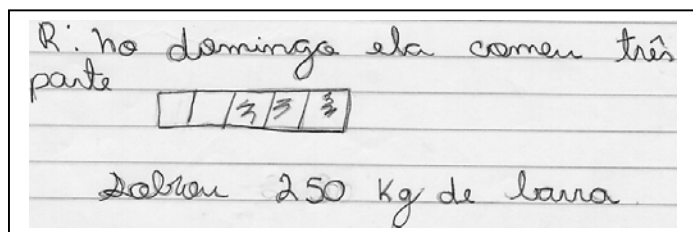 R: no domingo ela comeu três
parte
Sobrou 250 Kg de barra